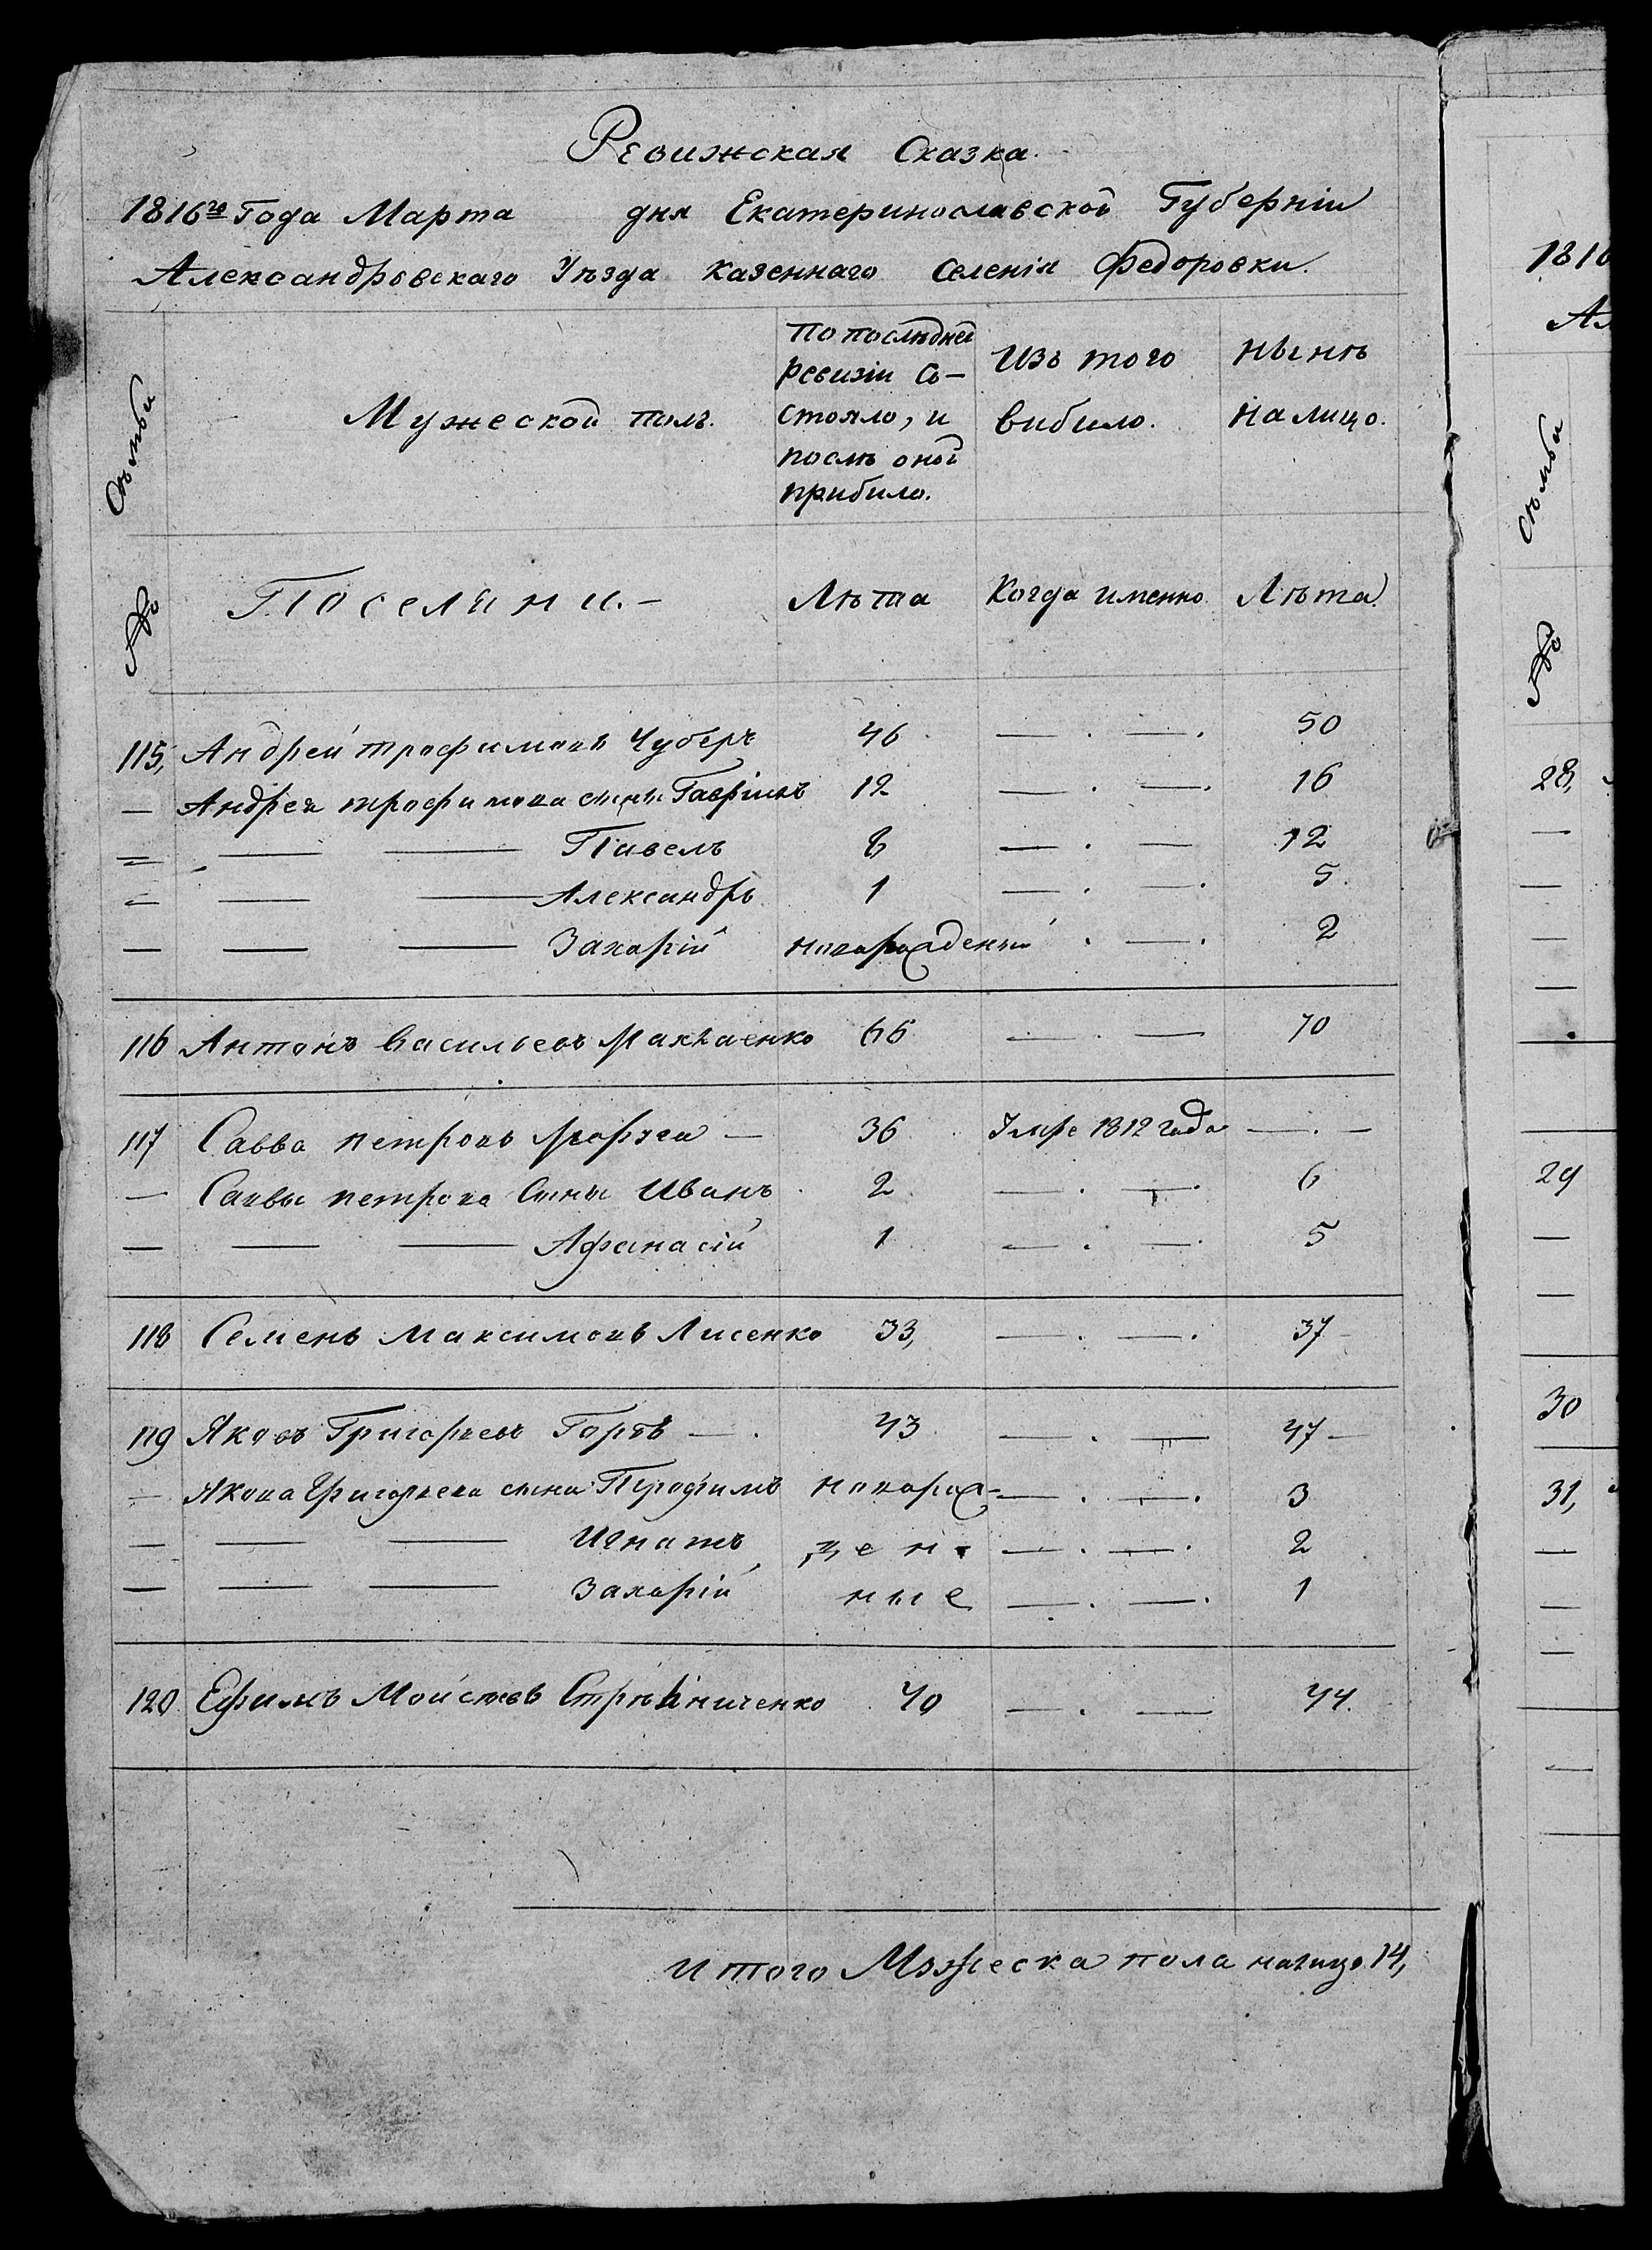 Ревижская Сказка.
1816го Года Марта дня Екатеринославской Губерніи
Александровскаго Уѣзда казеннаго Селенія Федоровки.
№ Сѣмьи
Мужеской полъ.
По послѣдней ревизіи Со-
стояло, и послѣ оной прибило.
Изъ того вибило.
Нынѣ налицо.
Поселяни.–
Лѣта
Когда именно
Лѣта.
115, Андрей трофимовъ Чуберъ 46 — . — . 50
— Андрея трофимова сыны Гаврилъ 12 — . — . 16
— — — Павелъ 8 — . — 12
— — — Александръ 1 — . — . 5.
— — — Захарій новорожденый . — . 2
116 Антонъ Васильевъ 66 — . — 70
117 Савва петровъ — 36 Умре 1812 года — . —
— Саввы петрова Сыны Иванъ 2 — . — . 6
— — — Афанасій 1 — . — . 5
118 Семенъ Максимовъ Лисенко 33, — . — . 37
119 Яковъ Григорьевъ — . 43 — . — 47 —
— Якова Григорьева сыны новорож- — . — . 3
— — — Игнатъ, ден — . — . 2
— — — Захарій ные — . — . 1
120 Ефимъ Моисеевъ 40 — . — 44.
Итого Мужеска пола налицо 14,
1816
28,
29
30
31,
Сѣмьи
№